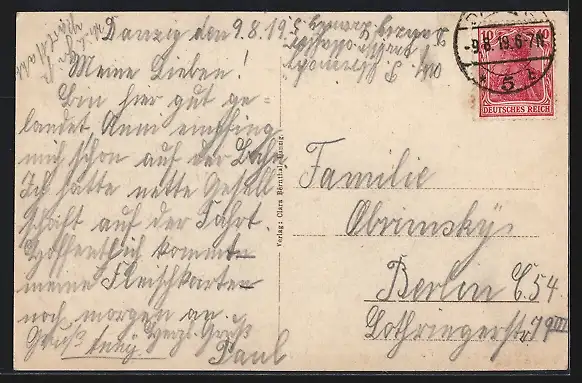 Danzig den 9.8.19
Meine Lieben!
Bin hier gut ge-
landet, Anni empfing
mich schon auf der Bahn
Ich hatte nette Gesell
schaft auf der Fahrt.
Hoffentlich kommen
meine Fleischkarten
noch morgen an.
Gruß Herzl. Gruß
Paul
Verlag: Clara Bernthal, Danzig
-9.8.19.6-7N
5 b
10 10
DEUTSCHES REICH
Familie
Obrimsky
Berlin C. 54.
Lothringerstr. 79III